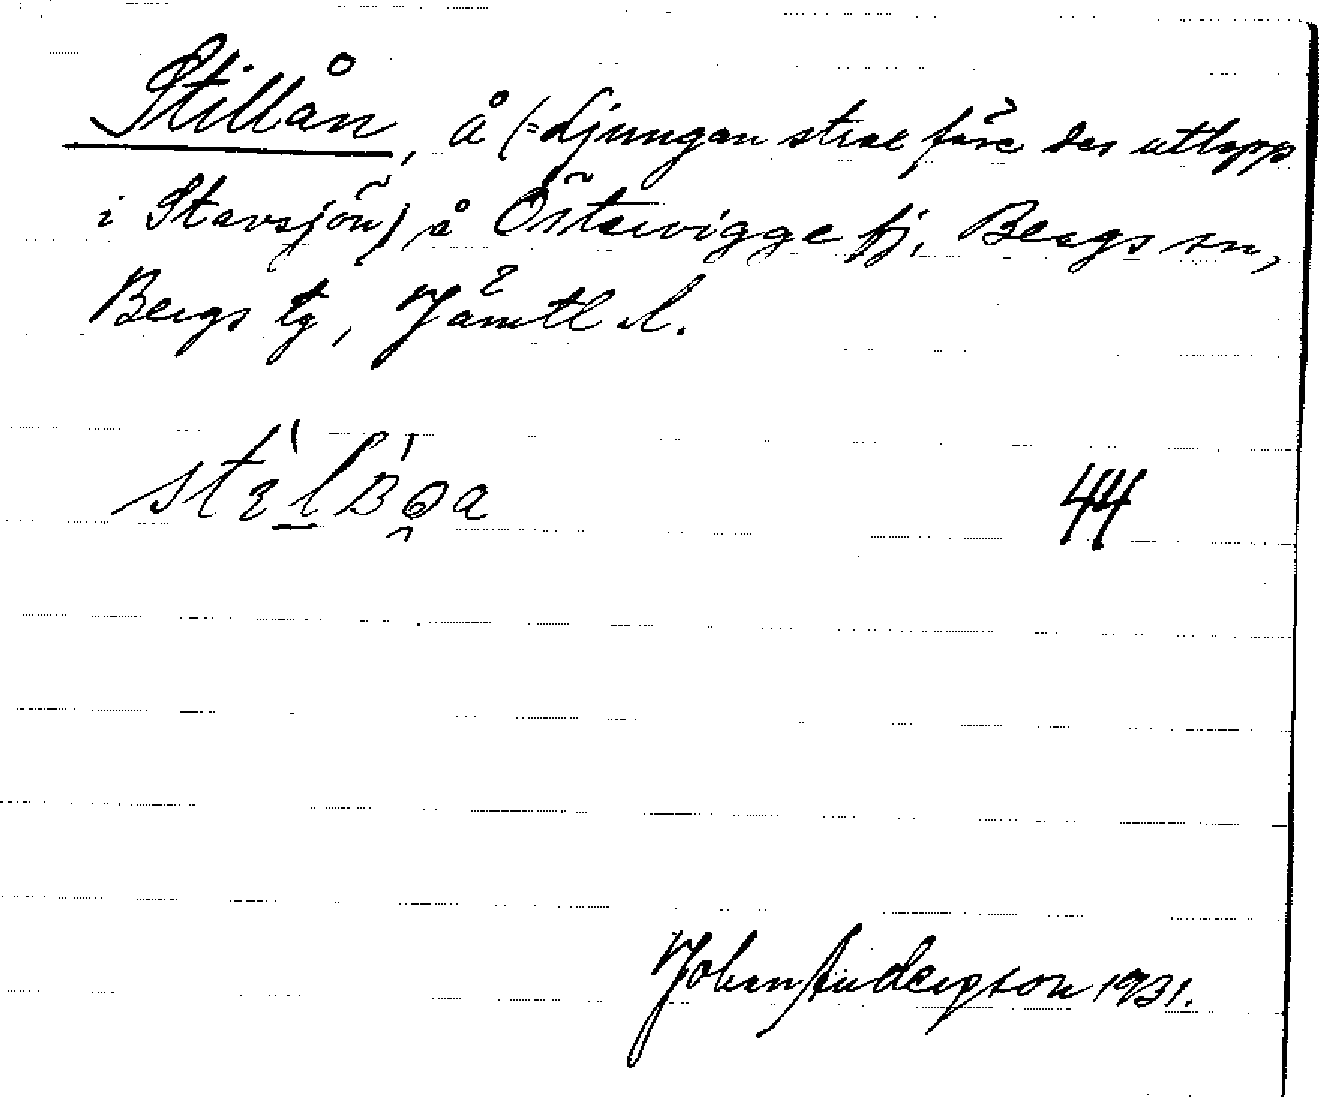 Stillån, å (= Ljungan strax före des utlopp
i Stavsjön), å Östervigge fj, Bergs sn,
Bergs tg, Jämtl l.
44
Johan Anderson 1931.